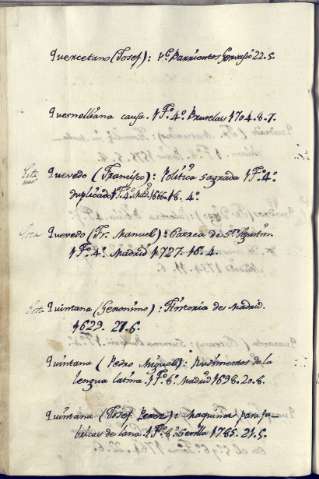 Quercetano (Josef): Vᵉ Barrientos Gervasio 22. 5.
Quesnelliana causa. 1 Fº 4º. Bruselas 1704. 8. 7.
Quevedo (Francisco): Politica sagrada 1 Fº 4º
duplicado 1 Fº 4º Mad. 1666 16. 4º
Quevedo (Fr. Manuel): Correa de Sⁿ Agustin
1 Fº 4º. Madrid 1727. 16. 4.
Quintana (Geronimo): Historia de Madrid.
1629. 27. 6.
Quintana (Pedro Miguel): Rudimentos de la
lengua latina. 1 Fº 8º. Madrid 1698. 20. 8.
Quintana (Josef Perez): Maquina para fa-
bricas de lana. 1 Fº 8º Sevilla 1785. 21. 5.